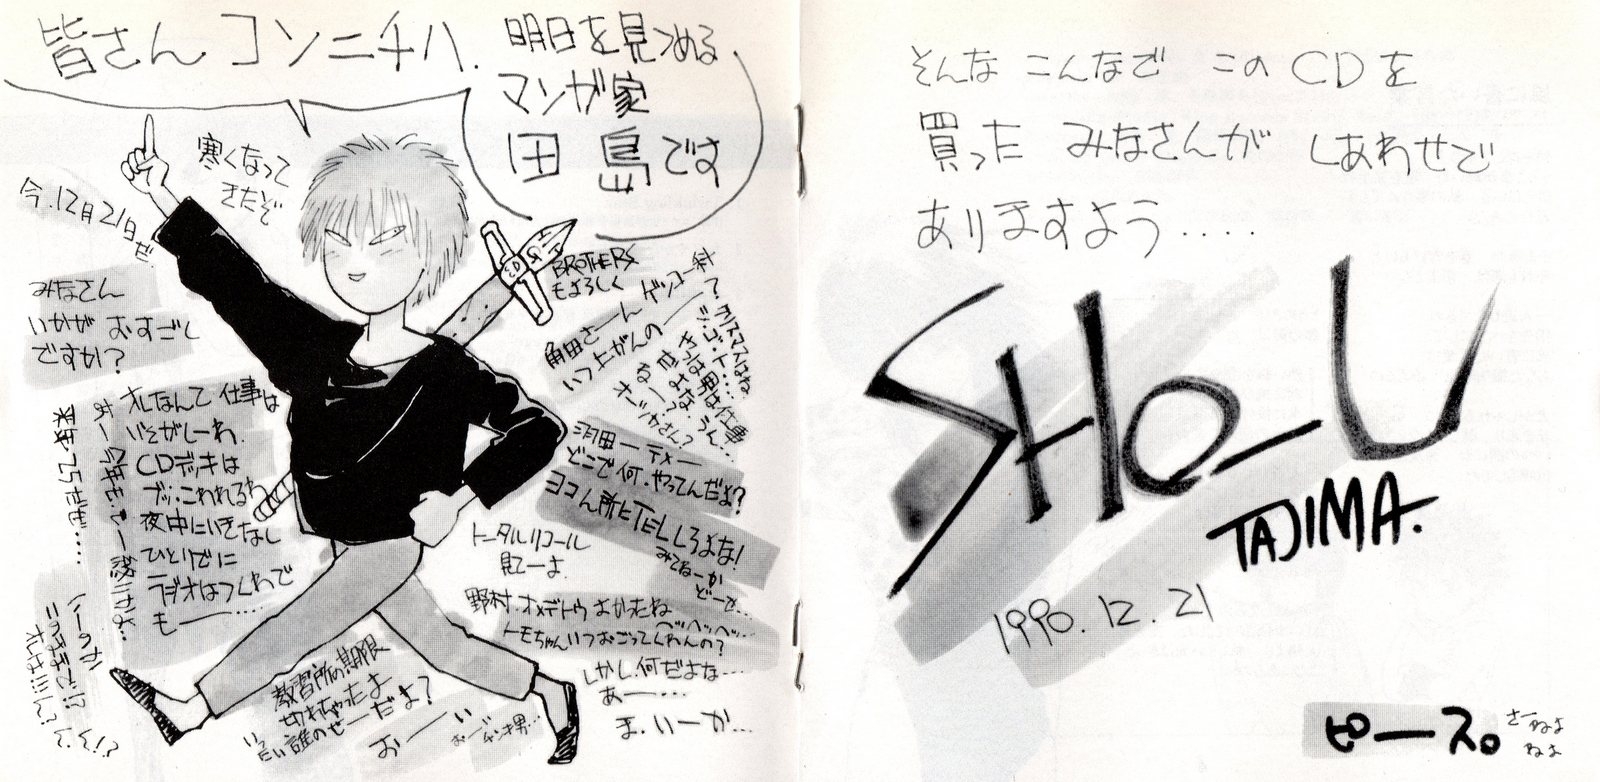 皆さん コンニチハ.
明日を見つめる
マンガ家
田島です
寒くなって
きたぞ
今.12月21日だ.
みなさん
いかが おすごし
ですか?
オレなんて 仕事は
いそがしーわ.
CDデキは
ブッ.こわれるわ
夜中にいきなし
ひとりでに
ラジオはつくわで
もー……
来年25だぜ……
BROTHERS
もよろしく
角田さーん ゲッコー料
いつ上がんのー?
クリスマスはね
オレは仕事
羽田ーテメー
どこで何.やってんだよ?
ヨコん所にTELしろよな!
みてねーか
どーせ…
トータルリコール
見てーよ.
野村.オメデトウ よかったね
ヘッヘッヘッ…
トモちゃんいつおごってくれんの?
しかし.何だよな…
あー……
ま.いーか…
教習所の期限
切れちゃったよ
いったい誰のせーだよ?
おーい
いーのか
こんなで!?
そんな こんなで このCDを
買った みなさんが しあわせで
ありますよう....
SHO-U
TAJIMA.
1990.12.21
ピース。
さーねよ
ねよ